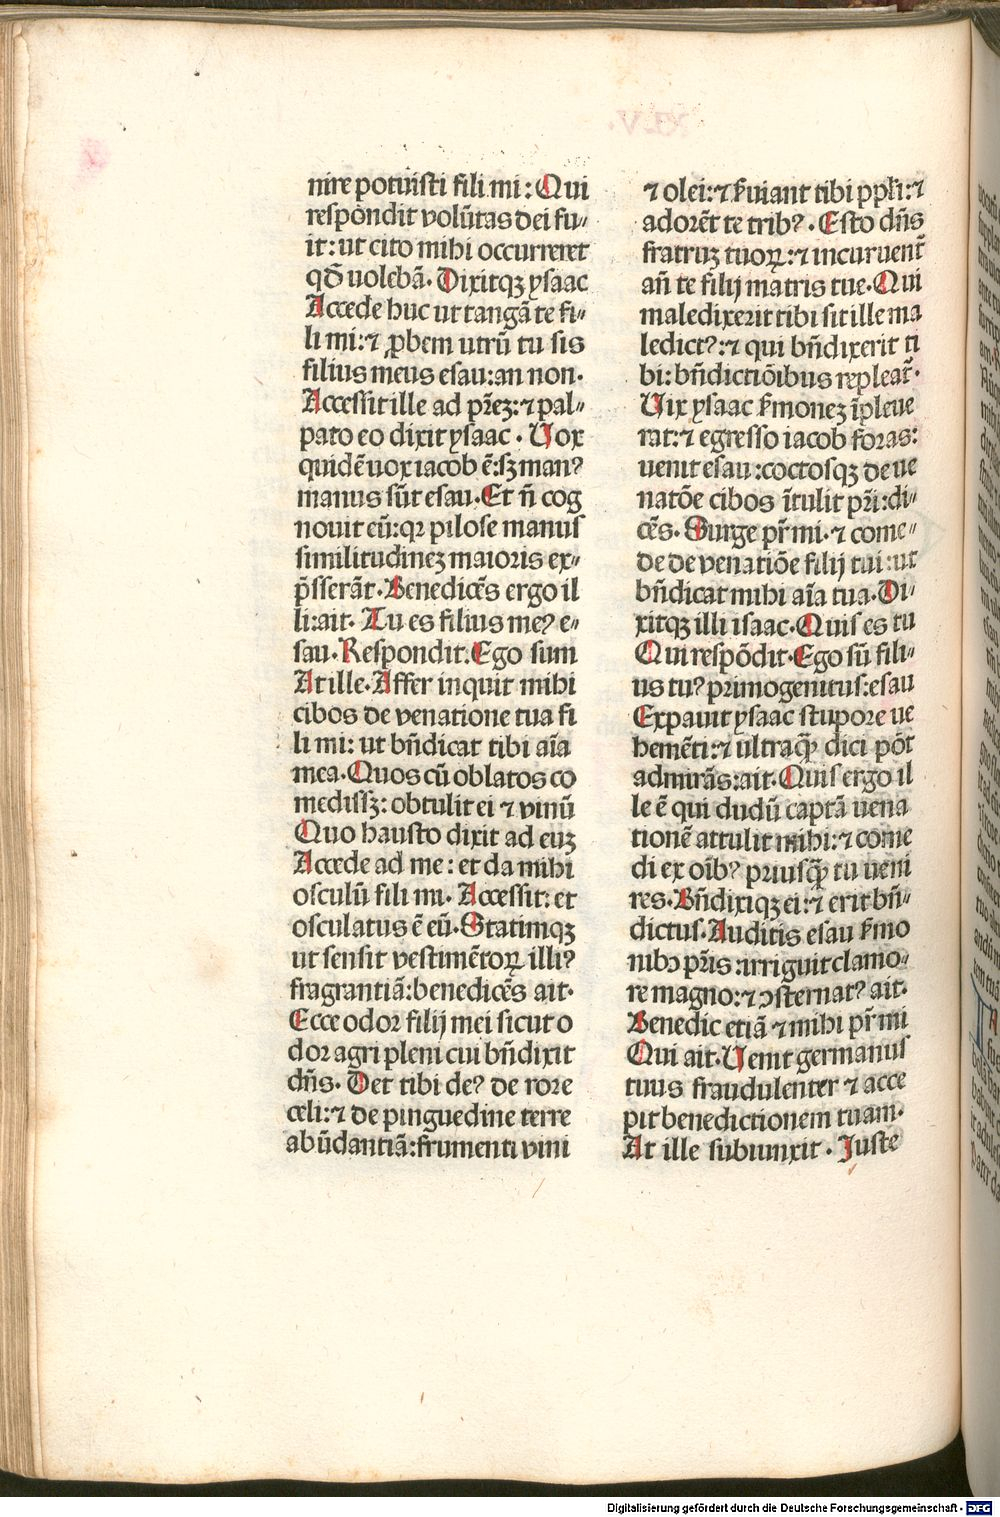 nire potuisti fili mi: Qui
respondit volūtas dei fu⸗
it: ut cito mihi occurreret
qđ uolebā. Dixitqꝫ ysaac
Accede huc ut tangā te fi⸗
li mi: ⁊ ꝓbem utrū tu sis
filius meus esau: an non.
Accessit ille ad p̄reꝫ: ⁊ pal⸗
pato eo dixit ysaac. Uox
quidē uox iacob ē: sꝫ manꝰ
manus sūt esau. Et ñ cog
nouit eū: qꝛ pilose manus
similitudineꝫ maioris ex⸗
p̄sserāt. Benedicēs ergo il
li: ait. Tu es filius meꝰ e⸗
sau. Respondit. Ego sum
At ille. Affer inquit mihi
cibos de venatione tua fi
li mi: ut bn̄dicat tibi aīa
mea. Quos cū oblatos co
medissꝫ: obtulit ei ⁊ vinū
Quo hausto dixit ad euꝫ
Accede ad me: et da mihi
osculū fili mi. Accessit: et
osculatus ē eū. Statimqꝫ
ut sensit vestimētoꝝ illiꝰ
fragrantiā: benedicēs ait.
Ecce odor filij mei sicut o
dor agri pleni cui bn̄dixit
dn̄s. Det tibi deꝰ de rore
celi: ⁊ de pinguedine terre
abūdantiā: frumenti vini
⁊ olei: ⁊ ẜuiant tibi ppl̄i: ⁊
adorēt te tribꝰ. Esto dn̄s
fratruꝫ tuoꝝ: ⁊ incuruent̄
an̄ te filij matris tue. Qui
maledixerit tibi sit ille ma
ledictꝰ: ⁊ qui bn̄dixerit ti
bi: bn̄dictiōibus repleat̄.
Uix ysaac ẜmoneꝫ īpleue
rat: ⁊ egresso iacob foras:
uenit esau: coctosqꝫ de ue
natōe cibos ītulit pr̄i: di⸗
cēs. Surge pr̄ mi. ⁊ come⸗
de de venatiōe filij tui: ut
bn̄dicat mihi aīa tua. Di⸗
xitqꝫ illi isaac. Quis es tu
Qui respōdit. Ego sū fili⸗
us tuꝰ primogenitus: esau
Expauit ysaac stupore ue
hemēti: ⁊ ultraqꝙ̄ dici pōt
admirās: ait. Quis ergo il
le ē qui dudū captā uena
tionē attulit mihi: ⁊ come
di ex oībꝰ priusqꝙ̄ tu ueni
res. Bn̄dixiqꝫ ei: ⁊ erit bn̄⸗
dictus. Auditis esau ẜmo
nibꝫ pr̄is: irriguit clamo⸗
re magno: ⁊ ꝯsternatꝰ ait.
Benedic etiā ⁊ mihi pr̄ mi
Qui ait. Uenit germanus
tuus fraudulenter ⁊ acce
pit benedictionem tuam.
At ille subiunxit. Juste
Digitalisierung gefördert durch die Deutsche Forschungsgemeinschaft - DFG